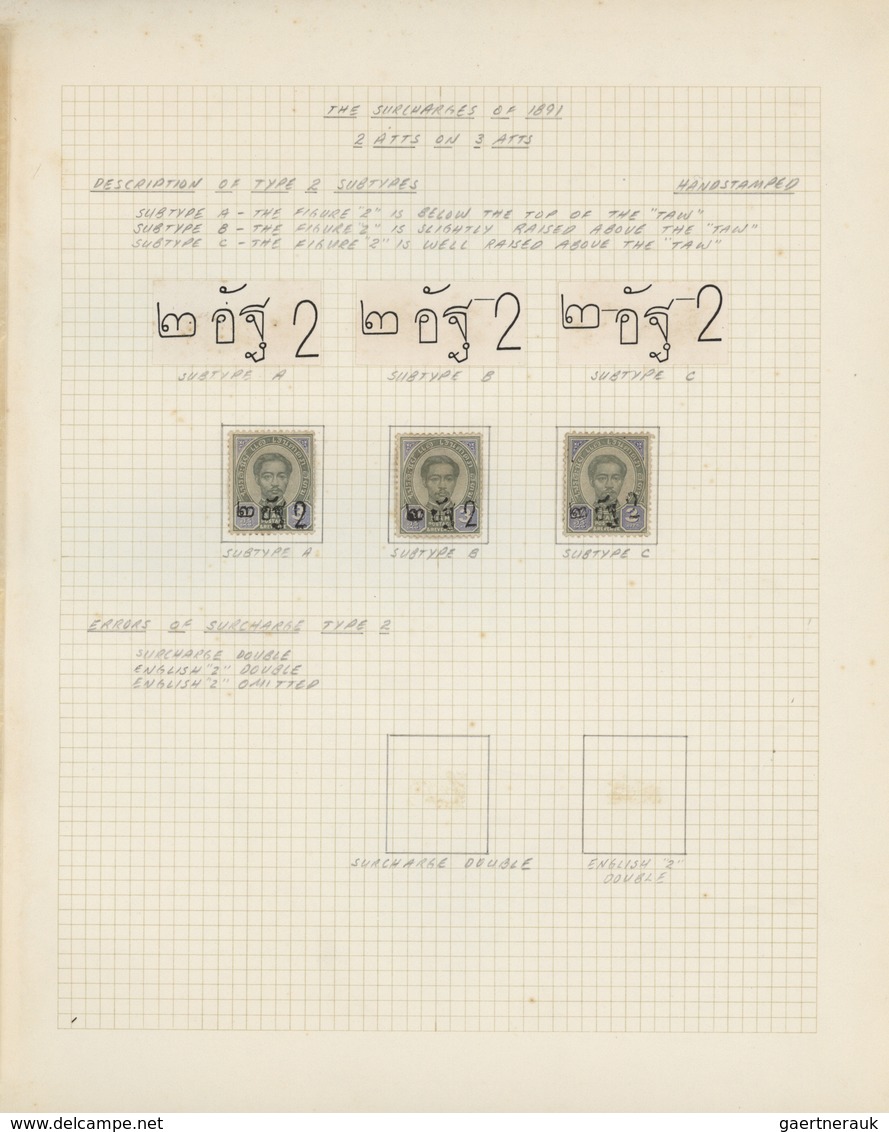 THE SURCHARGES OF 1891
2 ATTS ON 3 ATTS
DESCRIPTION OF TYPE 2 SUBTYPES HANDSTAMPED
SUBTYPE A - THE FIGURE "2" IS BELOW THE TOP OF THE "TAW"
SUBTYPE B - THE FIGURE "2" IS SLIGHTLY RAISED ABOVE THE "TAW"
SUBTYPE C - THE FIGURE "2" IS WELL RAISED ABOVE THE "TAW"
๒ อัฐ 2 ๒ อัฐ 2 ๒ อัฐ 2
SUBTYPE A SUBTYPE B SUBTYPE C
๒ อัฐ 2 ๒ อัฐ 2 ๒ อัฐ 2
SUBTYPE A SUBTYPE B SUBTYPE C
ERRORS OF SURCHARGE TYPE 2
SURCHARGE DOUBLE
ENGLISH "2" DOUBLE
ENGLISH "2" OMITTED
SURCHARGE DOUBLE ENGLISH "2"
DOUBLE
gaertnerauk